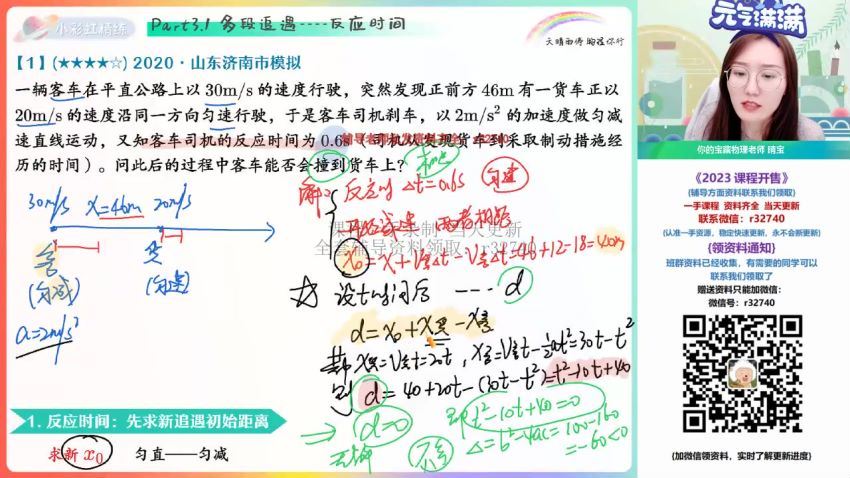 小彩虹精练
Part3.1 多段追遇----反应时间
天晴雨停 晴在你行
【1】(★★★★☆) 2020·山东济南市模拟
一辆客车在平直公路上以 30m/s 的速度行驶，突然发现正前方 46m 有一货车正以
20m/s 的速度沿同一方向匀速行驶，于是客车司机刹车，以 2m/s² 的加速度做匀减
速直线运动，又知客车司机的反应时间为 0.6s（司机从发现货车到采取制动措施经
历的时间）。问此后的过程中客车能否会撞到货车上？
30m/s x=46m 20m/s
客
(匀减)
货
(匀速)
a=2m/s²
解： 反应时 Δt=0.6s 匀速
开始减速 两者相距
x₀=x+V货Δt-V客Δt=46+12-18=40m
设t时间后 ---- d
d=x₀+x货-x客
其中 x货=V货t=20t，x客=V客t-½at²=30t-t²
则 d=40+20t-(30t-t²)=t²-10t+40
⇒ d=0
即t²-10t+40=0
Δ=b²-4ac=100-160
=-60<0
无解
不会
1. 反应时间：先求新追遇初始距离
求新 x₀ 匀直——匀减
元气满满
你的宝藏物理老师 晴宝
《2023 课程开售》
(辅导方面资料联系我们领取)
一手课程 资料齐全 当天更新
联系微信：r32740
(认准一手资源，稳定快速更新，永不会断更新)
{领资料通知}
班群资料已经收集，有需要的同学可以
联系我们领取了
赠送资料只能加微信：
微信号：r32740
(加微信领资料，实时了解更新进度)